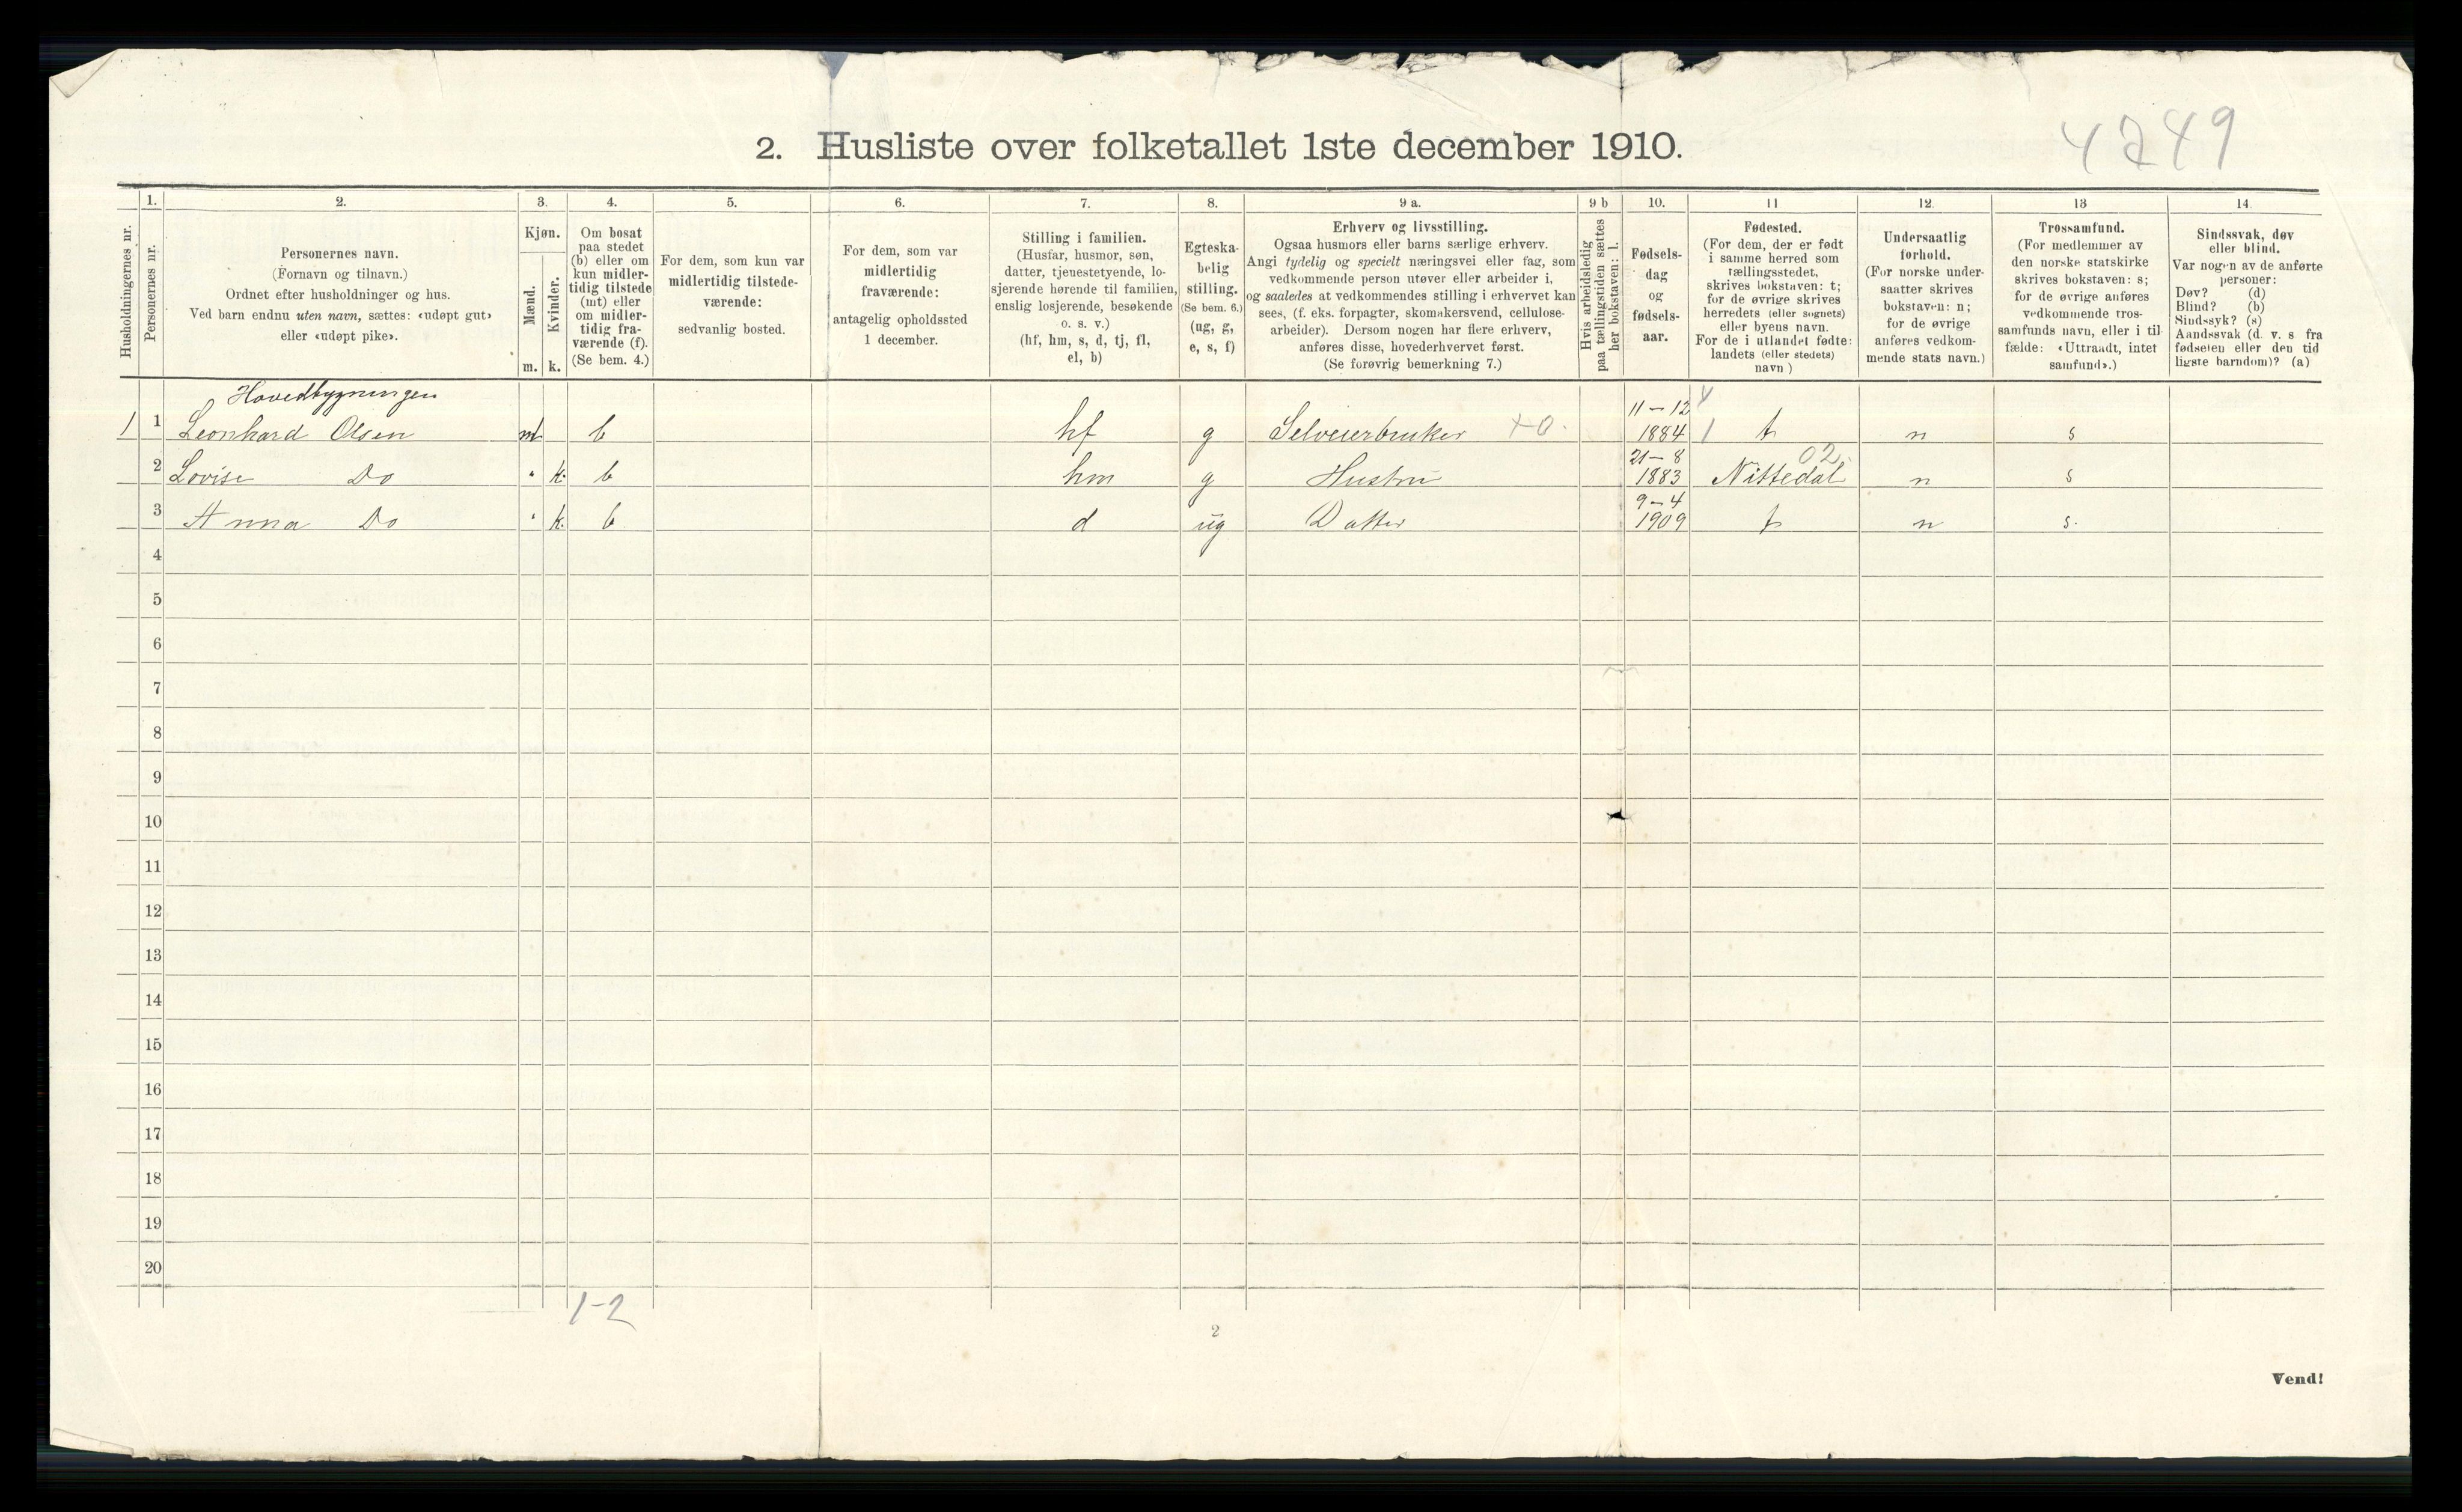 4249
2. Husliste over folketallet 1ste december 1910.
Husholdningernes nr.
1.
Personernes nr.
2.
Personernes navn.
(Fornavn og tilnavn.)
Ordnet efter husholdninger og hus.
Ved barn endnu uten navn, sættes: «udøpt gut»
eller «udøpt pike».
3.
Kjøn.
Mænd.
Kvinder.
m. k.
4.
Om bosat
paa stedet
(b) eller om
kun midler-
tidig tilstede
(mt) eller
om midler-
tidig fra-
værende (f).
(Se bem. 4.)
5.
For dem, som kun var
midlertidig tilstede-
værende:
sedvanlig bosted.
6.
For dem, som var
midlertidig
fraværende:
antagelig opholdssted
1 december.
7.
Stilling i familien.
(Husfar, husmor, søn,
datter, tjenestetyende, lo-
sjerende hørende til familien,
enslig losjerende, besøkende
o. s. v.)
(hf, hm, s, d, tj, fl,
el, b)
8.
Egteska-
belig
stilling.
(Se bem. 6.)
(ug, g,
e, s, f)
9 a.
Erhverv og livsstilling.
Ogsaa husmors eller barns særlige erhverv.
Angi tydelig og specielt næringsvei eller fag, som
vedkommende person utøver eller arbeider i,
og saaledes at vedkommendes stilling i erhvervet kan
sees, (f. eks. forpagter, skomakersvend, cellulose-
arbeider). Dersom nogen har flere erhverv,
anføres disse, hovederhvervet først.
(Se forøvrig bemerkning 7.)
9 b
Hvis arbeidsledig
paa tællingstiden sættes
her bokstaven: l.
10.
Fødsels-
dag
og
fødsels-
aar.
11
Fødested.
(For dem, der er født
i samme herred som
tællingsstedet,
skrives bokstaven: t;
for de øvrige skrives
herredets (eller sognets)
eller byens navn.
For de i utlandet fødte:
landets (eller stedets)
navn)
12.
Undersaatlig
forhold.
(For norske under-
saatter skrives
bokstaven: n;
for de øvrige
anføres vedkom-
mende stats navn.)
13
Trossamfund.
(For medlemmer av
den norske statskirke
skrives bokstaven: s;
for de øvrige anføres
vedkommende tros-
samfunds navn, eller i til-
fælde: «Uttraadt, intet
samfund».)
14.
Sindssvak, døv
eller blind.
Var nogen av de anførte
personer:
Døv? (d)
Blind? (b)
Sindssyk? (s)
Aandssvak (d. v. s fra
fødselen eller den tid
ligste barndom)? (a)
Hovedbygningen
1 1 Leonhard Olsen m b hf g Selveierbruker +0. 11-12 1884 t n s
2 Lovise Do " k. b hm g Hustru 21-8 1883 Nittedal 02 n s
3 Anna Do " k. b d ug Datter 9-4 1909 t n s.
4
5
6
7
8
9
10
11
12
13
14
15
16
17
18
19
20
1-2
2
Vend!